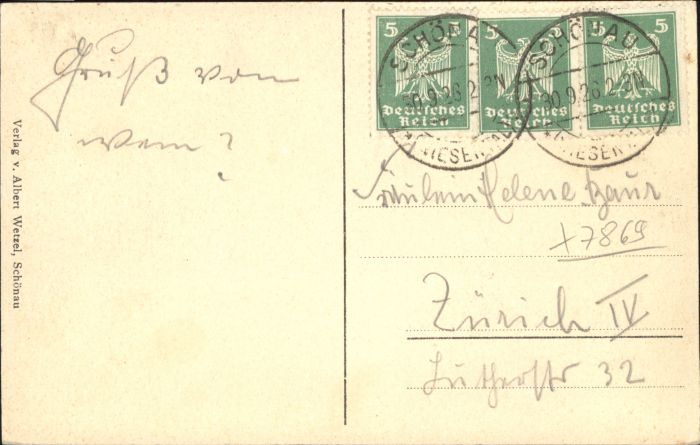 Gruß von
wem?
Verlag v. Albert Wetzel, Schönau
5 5 5 5 5
Deutsches Reich
Deutsches Reich
Deutsches Reich
SCHÖNAU
30.9.26.2-3N
SCHÖNAU
30.9.26.2-3N
Fräulein Helene Baur
+7869
Zürich IV
Lutherstr 32